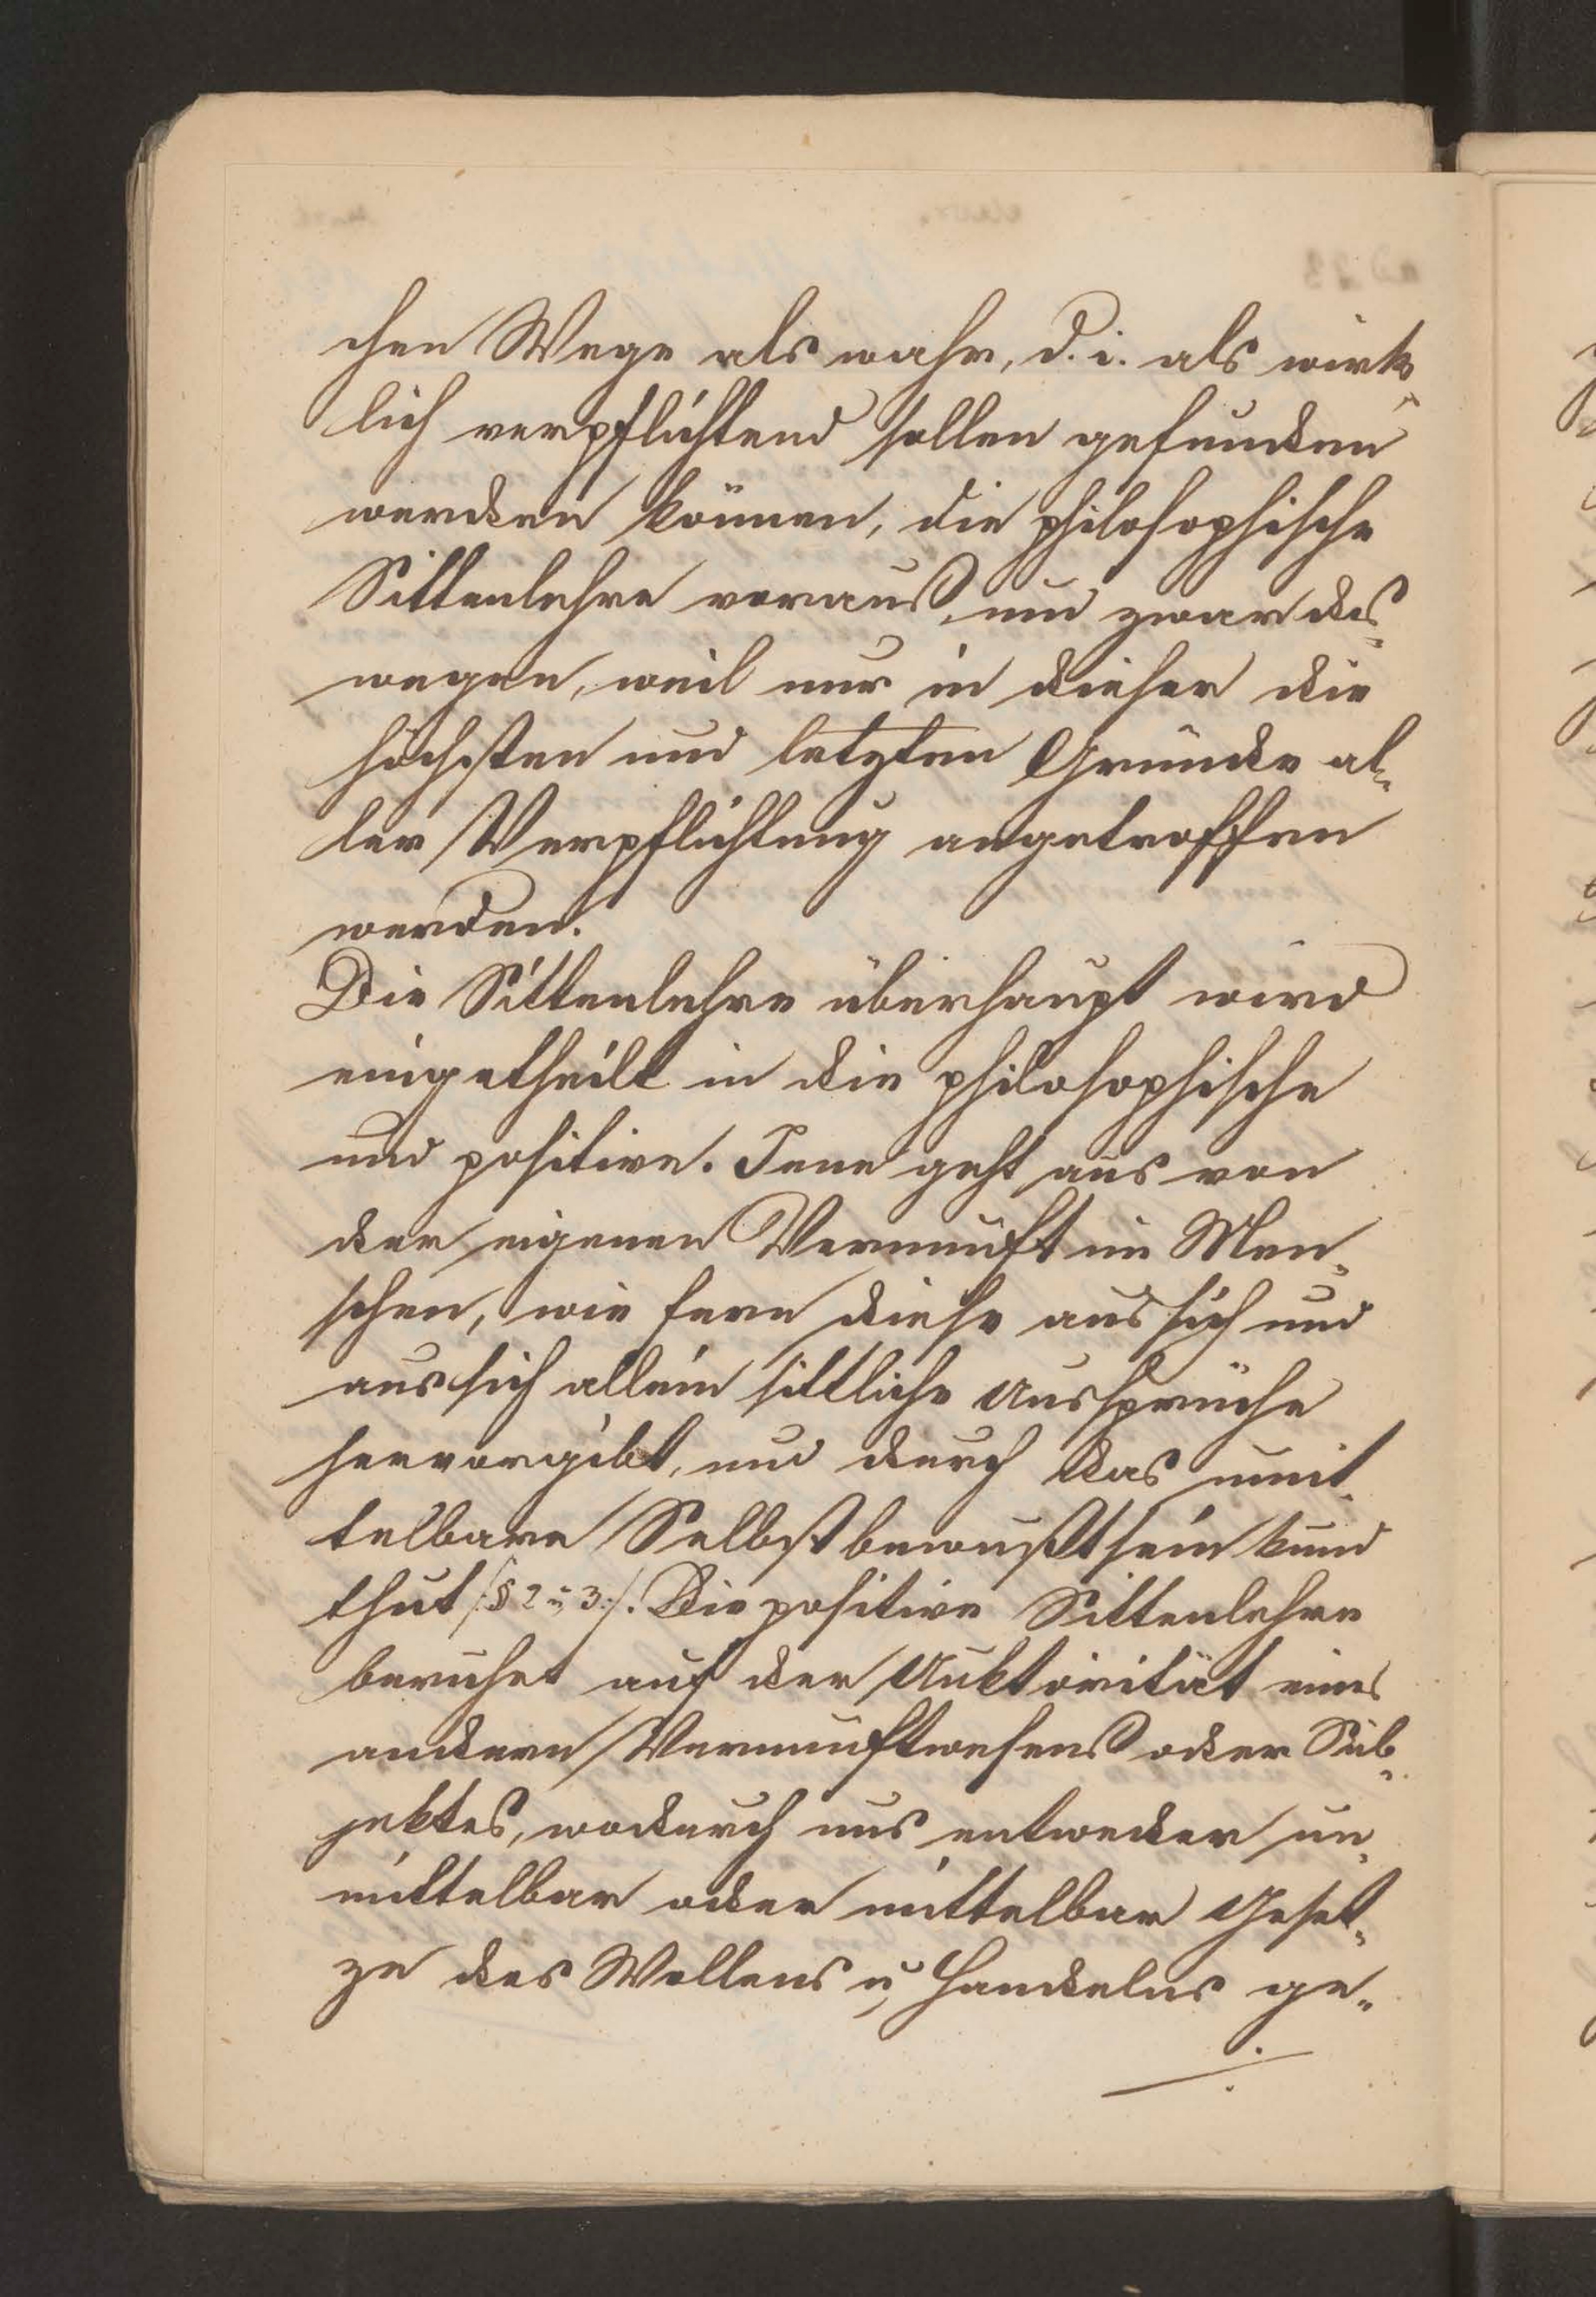 chen Wege als wahr, d. i. als wirk-
lich verpflichtend sollen gefunden
werden können, die philosophische
Sittenlehre voraus, und zwar des-
wegen, weil nur in dieser die
höchsten und letzten Gründe al-
ler Verpflichtung angetroffen
werden.
Die Sittenlehre überhaupt wird
eingetheilt in die philosophische
und positive. Jene geht aus von
der eigenen Vernunft im Men-
schen, wie fern diese aus sich und
aus sich allein sittliche Aussprüche
hervorgibt, und durch das unmit-
telbare Selbstbewußtsein kund
thut /:§ 2 u. 3:/. Die positive Sittenlehre
beruhet auf der Auktorität eines
andern Vernunftwesens oder Sub-
jektes, wodurch uns entweder un-
mittelbar oder mittelbar Geset-
ze des Wollens u. Handelns ge-